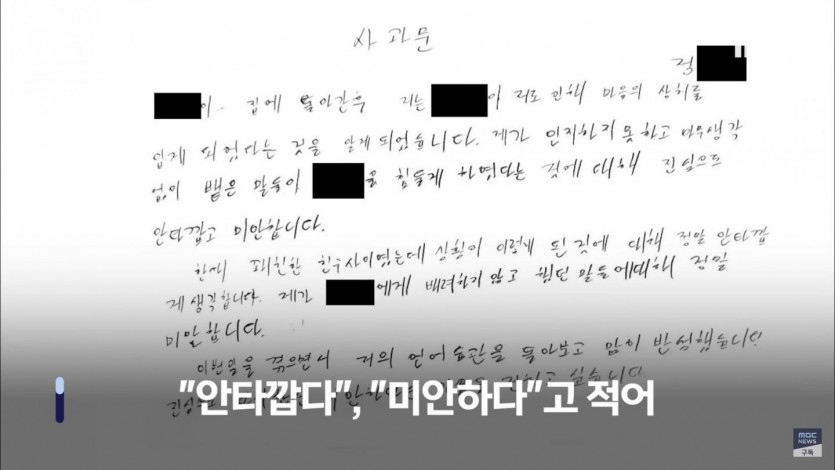 사과문
정
이.. 집에 돌아간후 저는 이 저로 인해 마음의 상처를
입게 되었다는 것을 알게 되었습니다. 제가 인지하지 못하고 아무생각
없이 뱉은 말들이 을 힘들게 하였다는 것에 대해 진심으로
안타깝고 미안합니다.
한때 꽤 친한 친구사이였는데 상황이 이렇게 된 것에 대해 정말 안타깝
게 생각합니다. 제가 에게 배려하지 않고 했던 말들에대해 정말
미안합니다.
이번일을 겪으면서 저의 언어습관을 돌아보고 많이 반성했습니다
싶습니다
"안타깝다", "미안하다"고 적어
MBC
NEWS
구독